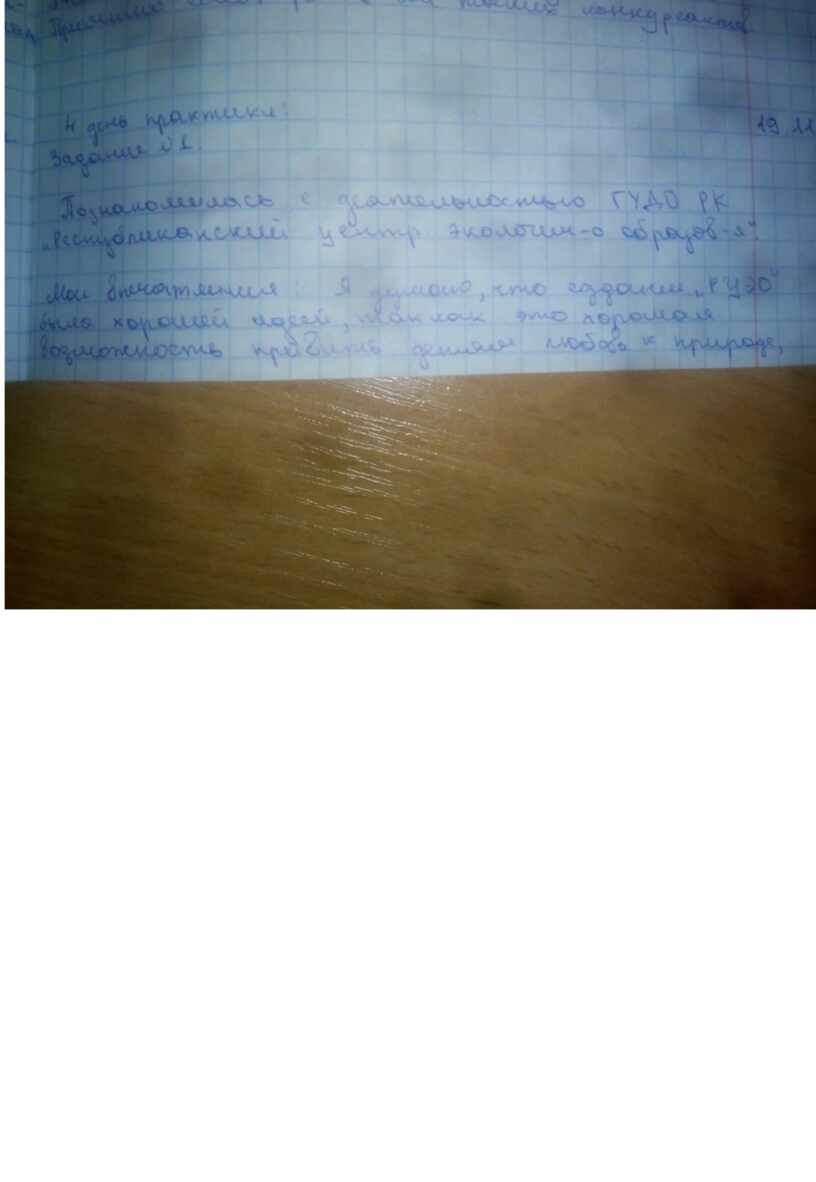 наших конкурсантов
4 день практики: 19.11
Задание №1.
Познакомилась с деятельностью ГУДО РК
„Республиканский центр экологич-о образов-я".
Мои впечатления: Я думаю, что создание „РЦЭО"
было хорошей идеей, так как это хорошая
возможность привить детям любовь к природе,